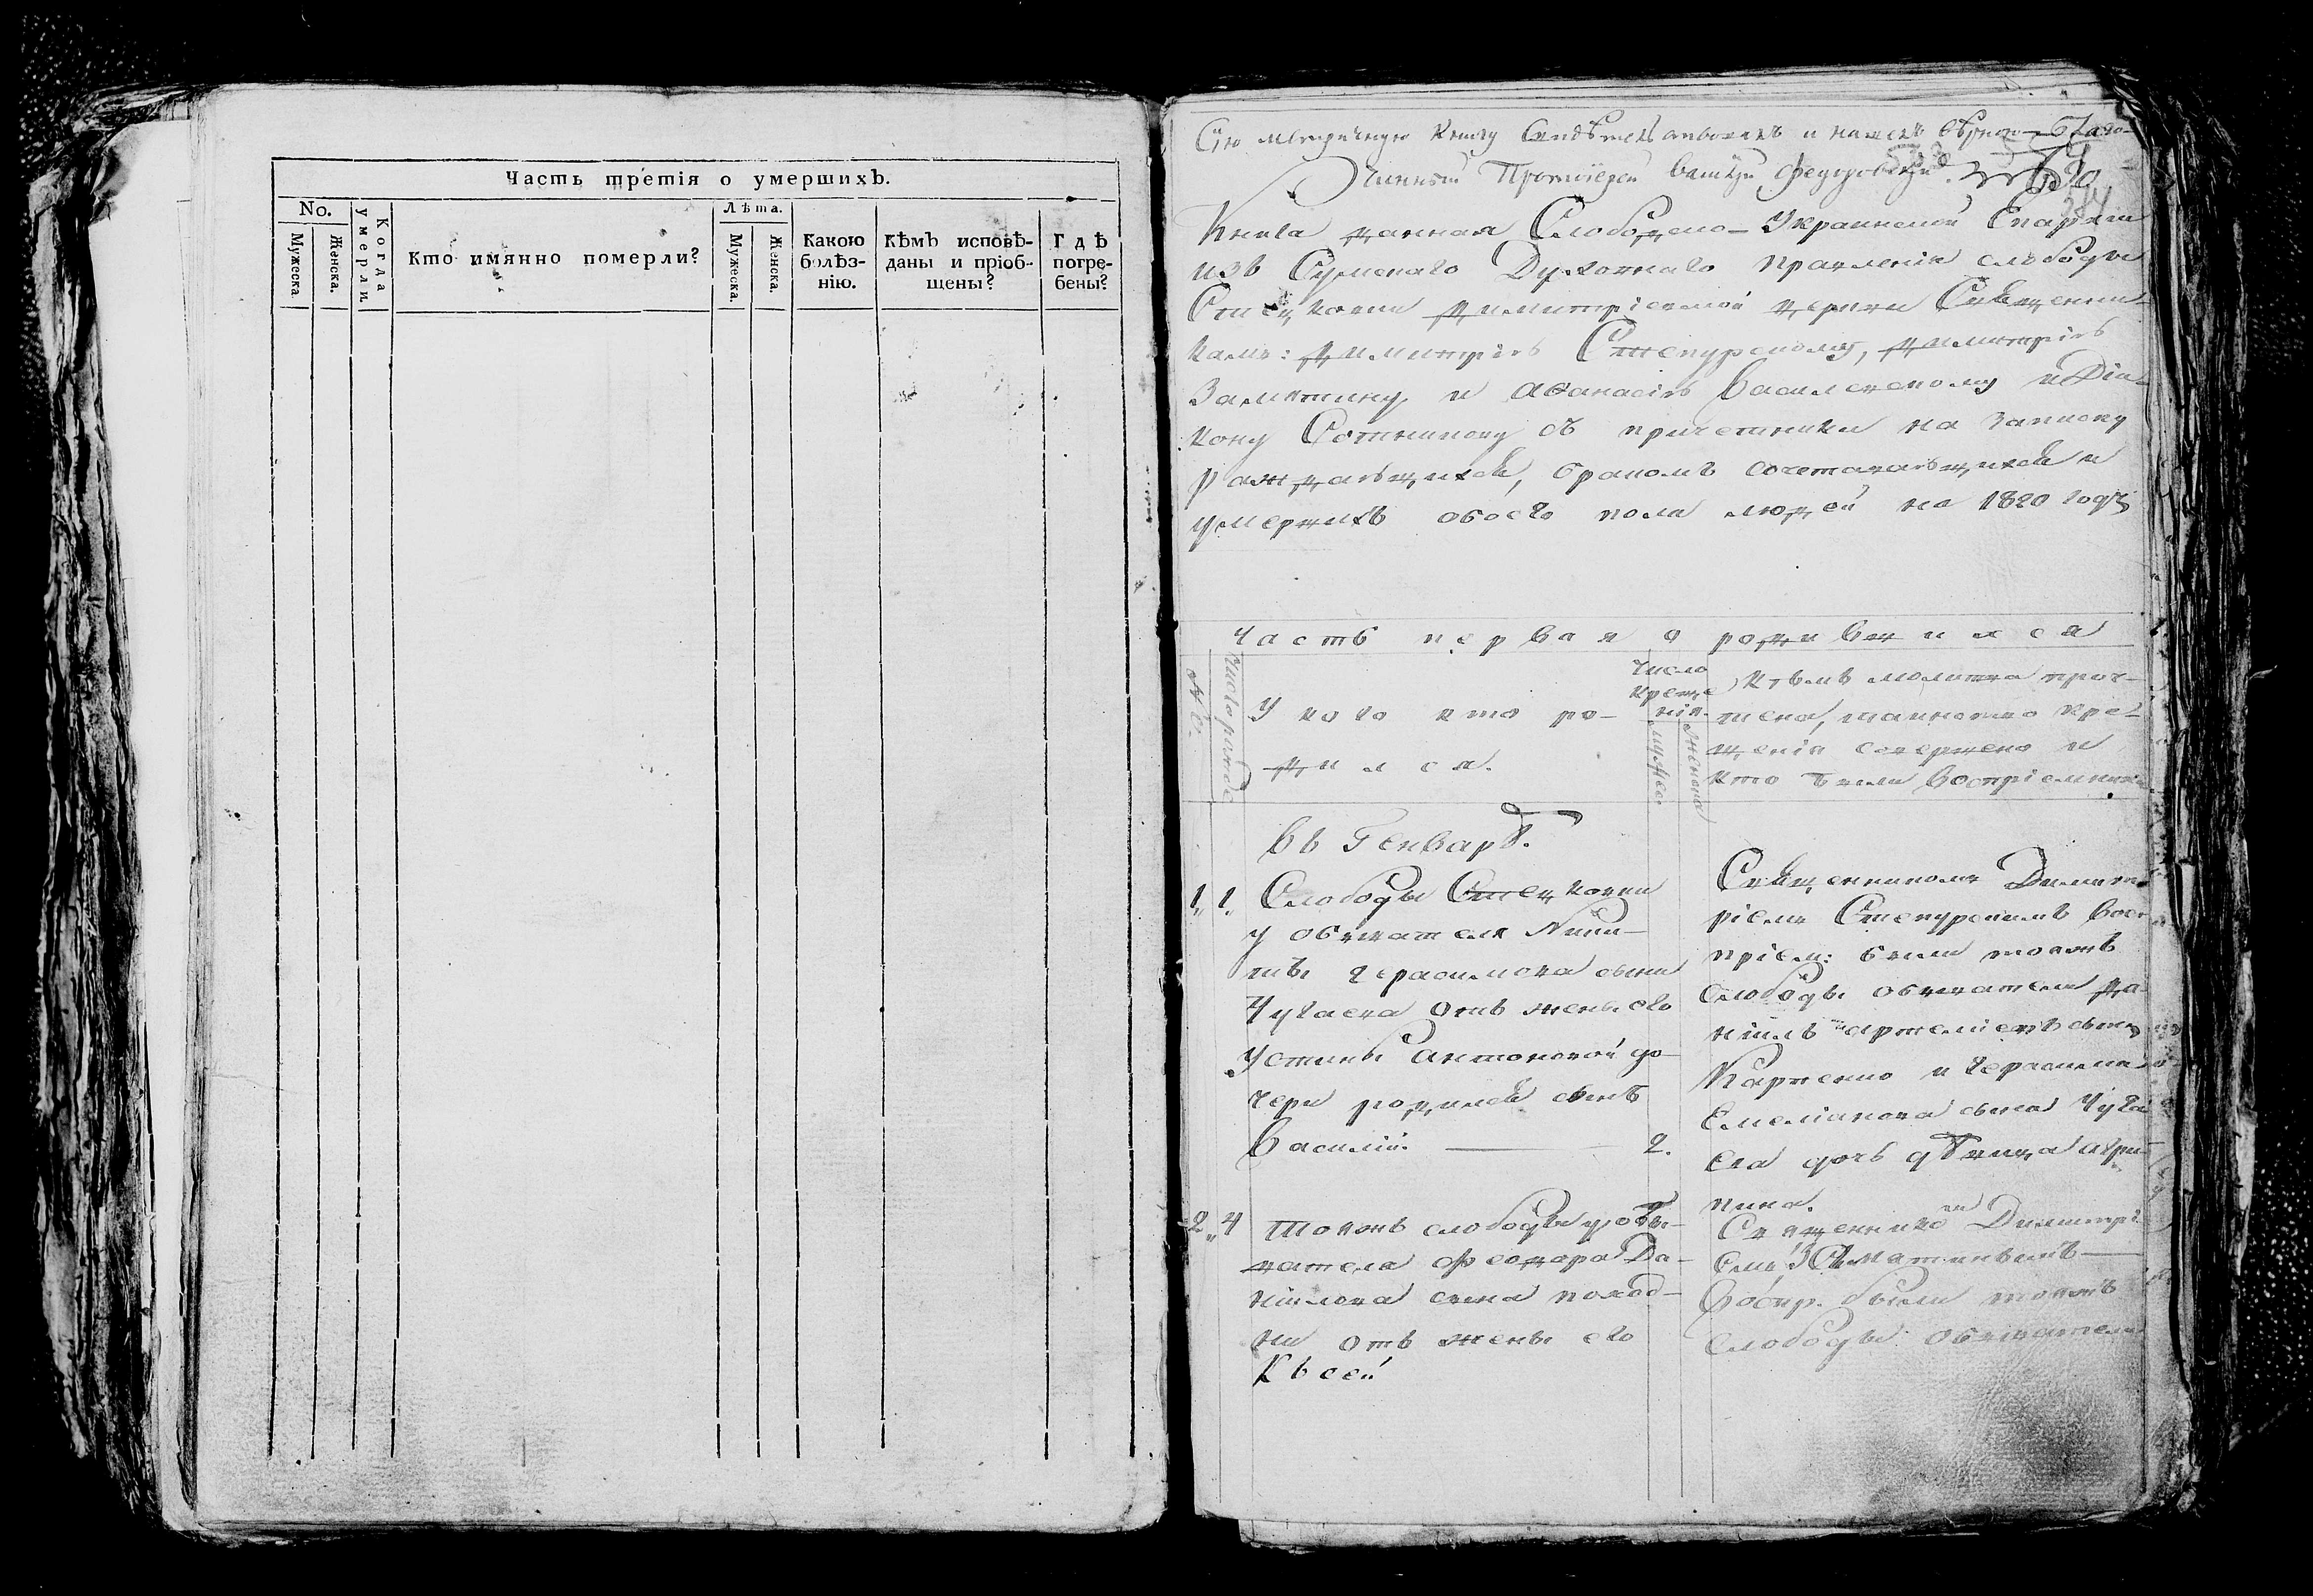 Часть третія о умершихъ.
No.
Мужеска.
Женска.
Когда умерли.
Кто имянно померли?
Лѣта.
Мужеска.
Женска.
Какою болѣз-
нію.
Кѣмъ исповѣ-
даны и пріоб-
щены?
Гдѣ
погре-
бены?
Сію метричную книгу свидѣтельствовалъ и нашелъ вѣрною Благо-
чинный Протоіерей Василій Федоровскій
Книга данная Слободско-Украинской Епархіи
изъ Сумскаго Духовнаго правленія слободы
Стецковки Димитріевской церкви Священни-
камъ: Димитрію Степурскому, Димитрію
Замятину и Афанасію Василевскому и Діа-
кону Сотникову съ причетники на записку
раждающихся, бракомъ сочетающихся и
умершихъ обоего пола людей на 1820 годъ
Часть первая о родившихся
№
Число рожде
У кого кто ро-
дился.
Число
креще
нія.
мужес.
женска
Кѣмъ молитва проч-
тена, таинство кре-
щенія совершено и
кто были воспріемники
Въ Генварѣ.
1. 1. Слободы Стецковки
у обывателя Ники-
ты Герасимова сына
Чугаева отъ жены его
Устины Антоновой до-
чери родился сынъ
Василій. 2.
Священникомъ Димит-
ріемъ Степурскимъ Вос-
пріем: были тоежъ
слободы обыватели Да-
ніилъ сынъ
Карпенко и Герасима
Емеліанова сына Чуга
ева дочь дѣвица Агри-
пина.
2. 4 Тоежъ слободы у обы-
вателя Феодора Да-
ніилова сына
отъ жены его
Ксеніи
Священникомъ Димитрі
емъ Замятинымъ
Воспр. были тоежъ
слободы обыватели